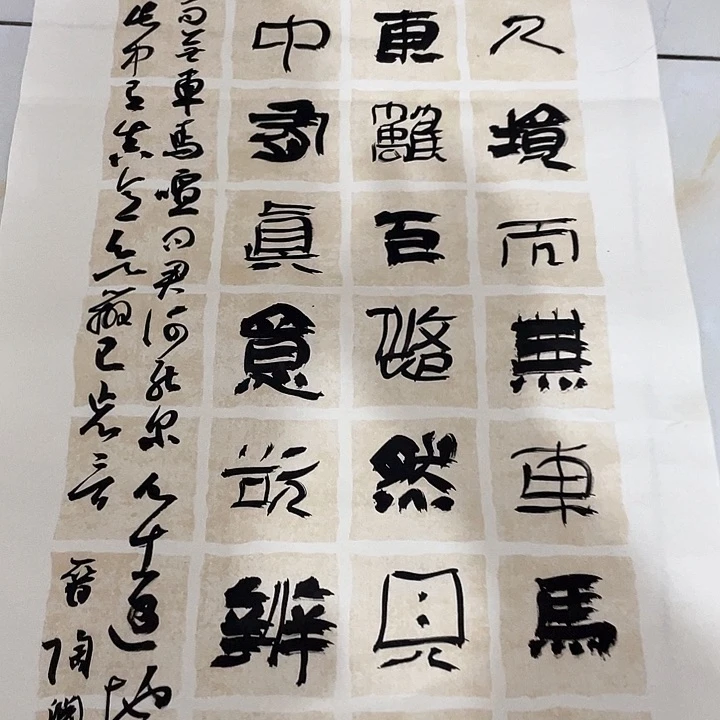 人境而無車馬
東籬悠然見
中有眞意欲辨
而無車馬喧问君何能尔心遠地
此中有真意欲辨已忘言
晉陶淵